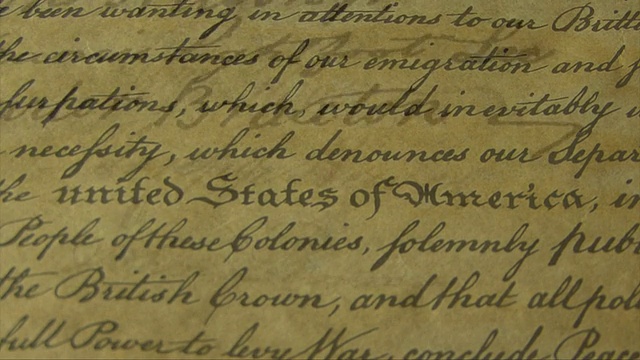 e been wanting in attentions to our Britti
the circumstances of our emigration and f
surpations, which, would inevitably i
necessity, which denounces our Separ
the united States of America, in
People of these Colonies, solemnly publ
the British Crown, and that all pol
full Power to levy War, conclude Peac